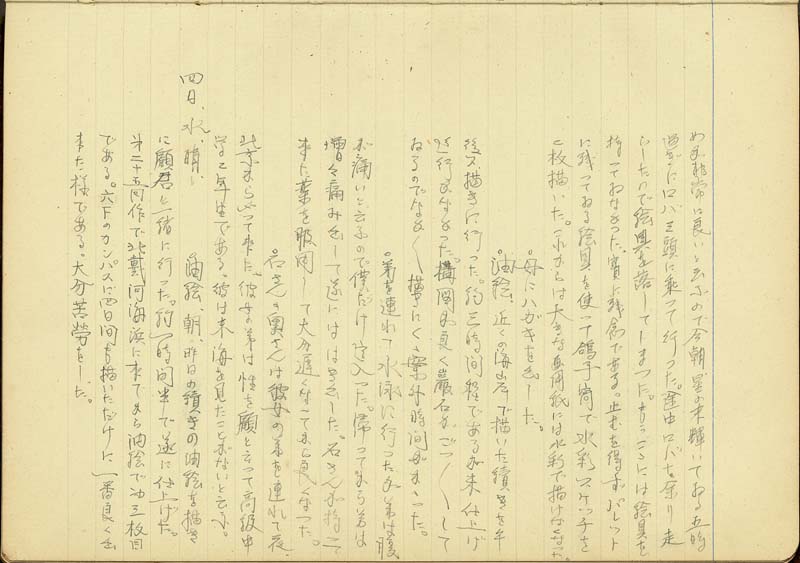 めは非常に良いと云ふので今朝星の未輝いてゐる五時
過ぎにロバ三頭に乗って行った。途中ロバを余り走
らしたので絵具を落してしまった。もうこゝには絵具を
持ってゐなかった。実に残念である。止むを得ずパレット
に残ってゐる絵具を使って鴿子窩で水彩スケッチを
二枚描いた。これからは大きな画用紙には水彩で描けなくなった。
○母にハガキを出した。
○油絵、近くの海岸で描いた続きを午
後又描きに行った。約三時間程であるが未仕上げ
行かなかった。構図も良く巌石がごつ〱して
ゐるのでなか〱描きにくく案外時間がかゝった。
○弟を連れて水泳に行ったが弟は腹
が痛いと云ふので僕だけ這入った。帰ってから弟は
増々痛み出して遂には はき出した。石さんが持って
来た薬を服用して大分遅くなってから良くなった。
○石さんの奥さんは彼女の弟を連れて夜、
北京から帰って来た。彼女の弟は性を顧と云って高級中
学二年生である。彼は未海を見たことがないと云ふ。
四日、水、晴、
○油絵、朝、昨日の続きの油絵を描き
に顧君と一緒に行った。約一時間半で遂に仕上げた。
第二十五号作で北戴河海浜に来てから油絵で第三枚目
である。六下のカンバスに四日間も描いただけに一番良く出
来た様である。大分苦労をした。